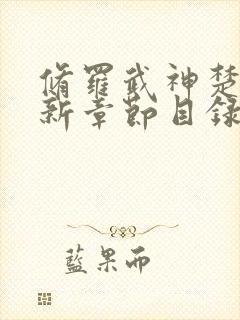 脩羅武神楚
新章節目錄
藍果而